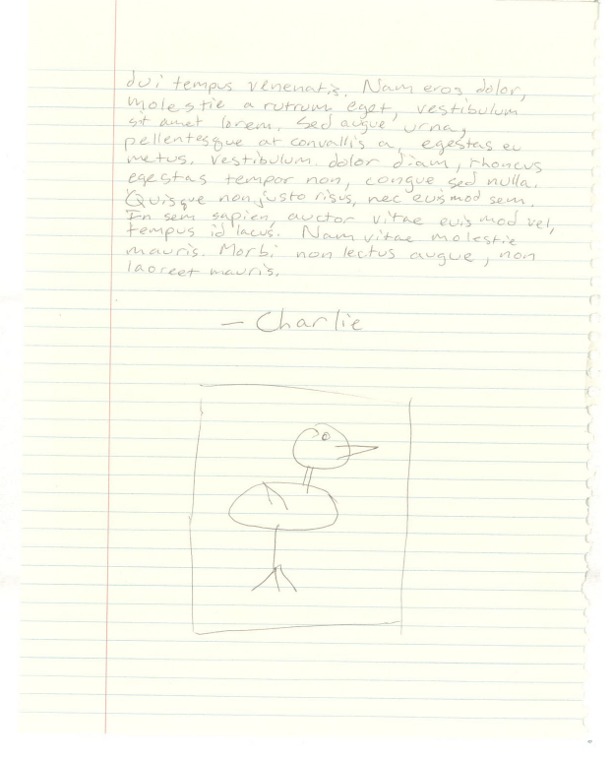 dui tempus venenatis. Nam eros dolor,
molestie a rutrum eget, vestibulum
sit amet lorem. Sed augue urna,
pellentesque at convallis a, egestas eu
metus. Vestibulum dolor diam, rhoncus
egestas tempor non, congue sed nulla.
Quisque non justo risus, nec euismod sem.
In sem sapien, auctor vitae euismod vel,
tempus id lacus. Nam vitae molestie
mauris. Morbi non lectus augue, non
laoreet mauris.
— Charlie